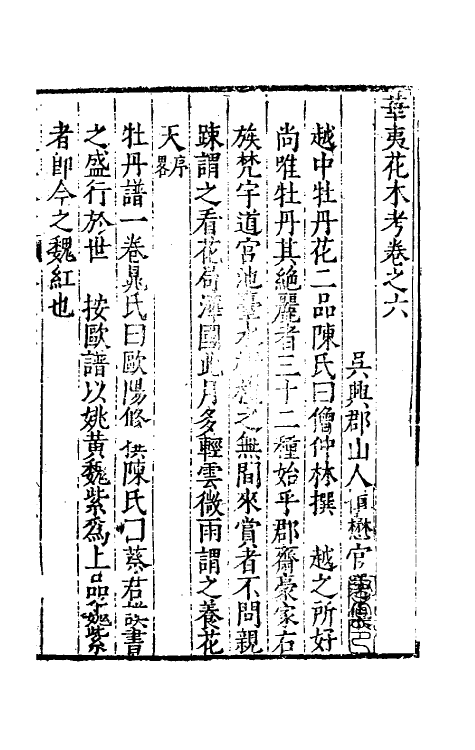 華夷花木考卷之六
吳興郡山人慎懋官選集
越中牡丹花二品陳氏曰僧仲林撰　越之所好
尚唯牡丹其絶麗者三十二種始乎郡齋豪家右
族梵宇道宫池臺水榭植之無間來賞者不問親
疎謂之看花局澤國此月多輕雲微雨謂之養花
天序畧
牡丹譜一卷晁氏曰歐陽修撰陳氏曰蔡君謨書
之盛行於世　按歐譜以姚黄魏紫爲上品魏紫
者卽今之魏紅也